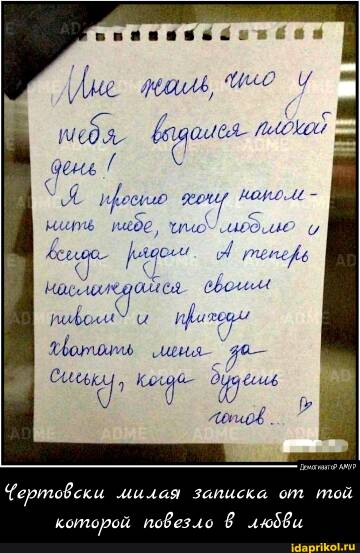 Мне жаль, что у
тебя выдался плохой
день!
Я просто хочу напом-
нить тебе, что люблю и
всегда рядом. А теперь
наслаждайся своим
пивом и приходи
хватать меня за
сиську, когда будешь
готов... ♡
ADME
Демотиватор АМУР
Чертовски милая записка от той
которой повезло в любви
idaprikol.ru